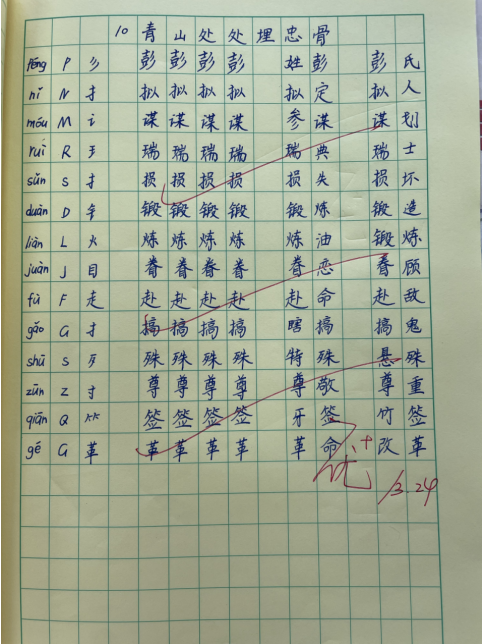 10 青山处处埋忠骨
Péng P 彡 彭彭彭彭 姓彭 彭氏
nǐ N 扌 拟拟拟拟 拟定 拟人
móu M 讠 谋谋谋谋 参谋 谋划
ruì R 王 瑞瑞瑞瑞 瑞典 瑞士
sǔn S 扌 损损损损 损失 损坏
duàn D 钅 锻锻锻锻 锻炼 锻造
liàn L 火 炼炼炼炼 炼油 锻炼
juàn J 目 眷眷眷眷 眷恋 眷顾
fù F 走 赴赴赴赴 赴命 赴敌
gǎo G 扌 搞搞搞搞 瞎搞 搞鬼
shū S 歹 殊殊殊殊 特殊 悬殊
zūn Z 寸 尊尊尊尊 尊敬 尊重
qiān Q ⺮ 签签签签 牙签 竹签
gé G 革 革革革革 革命 改革
优+
3.24